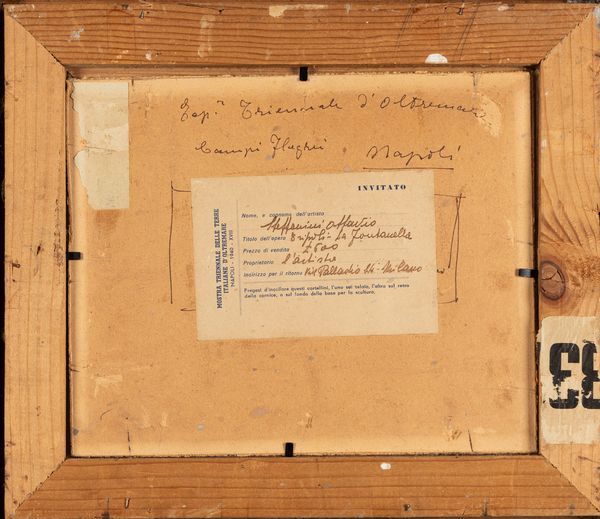 Esp.ne Triennale d'Oltremare
Campi Flegrei Napoli
INVITATO
MOSTRA TRIENNALE DELLE TERRE
ITALIANE D'OLTREMARE
NAPOLI - 1940 - XVIII
Nome, e cognome dell'artista
Titolo dell'opera Tripoli - La Fontanella
Prezzo di vendita £ 600
Proprietario l'artista
Indirizzo per il ritorno Via Palladio 24 - Milano
Pregasi d'incollare questi cartellini, l'uno sul telaio, l'altro sul retro
della cornice, o sul fondo della base per la scultura.